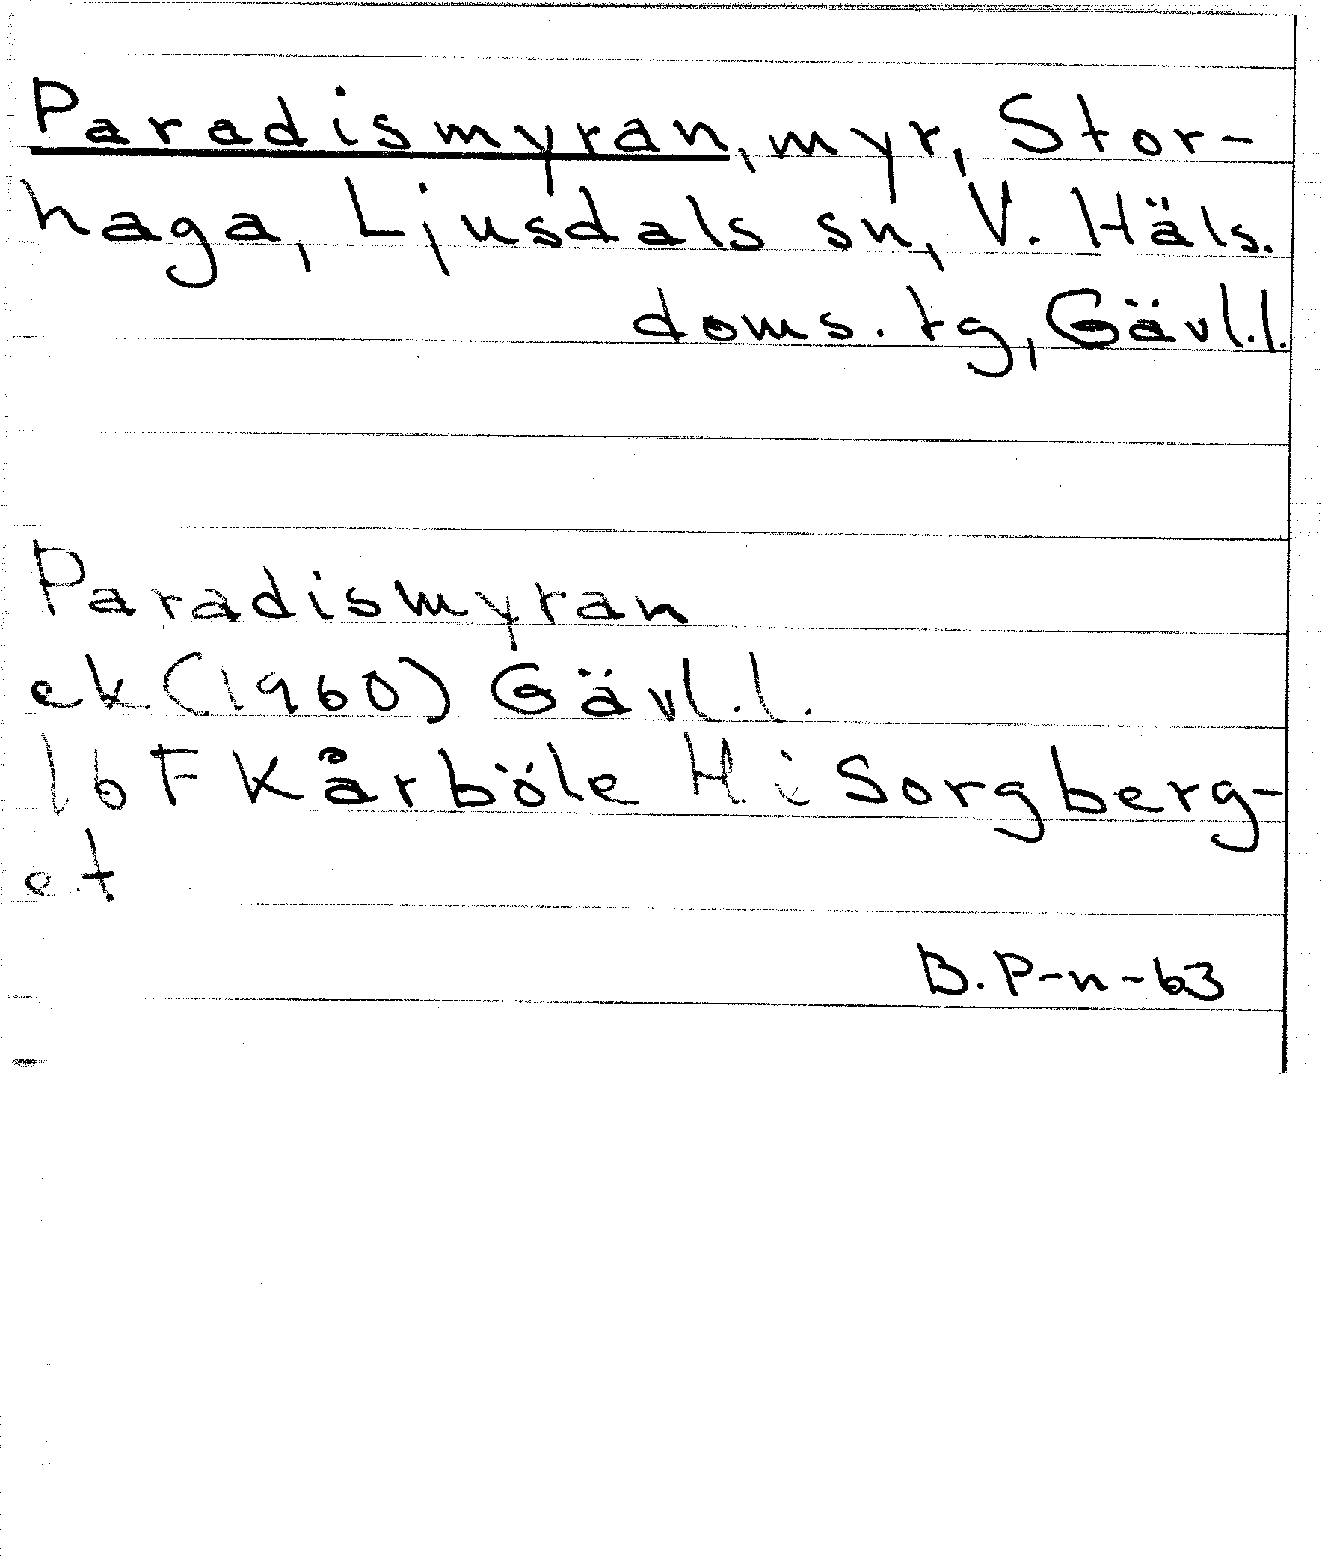 Paradismyran, myr, Stor-
haga, Ljusdals sn, V. Häls.
doms. tg, Gävl.l.
Paradismyran
ek (1960) Gävl.l.
16 F Kårböle H i Sorgberg-
et
B. P-n-63